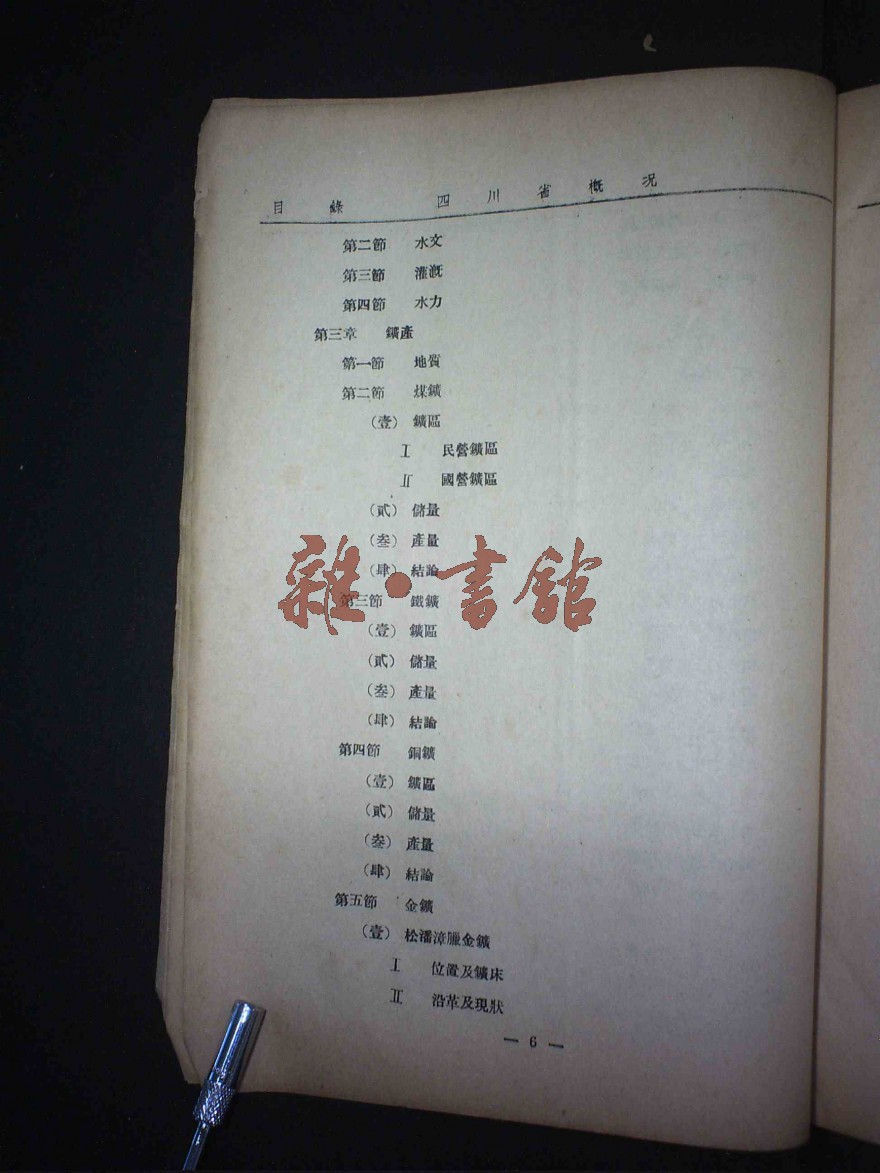 目錄 四川省概況
第二節 水文
第三節 灌漑
第四節 水力
第三章 鑛產
第一節 地質
第二節 煤鑛
（壹）鑛區
I 民營鑛區
II 國營鑛區
（貳）儲量
（叁）產量
（肆）結論
第三節 鐵鑛
（壹）鑛區
（貳）儲量
（叁）產量
（肆）結論
第四節 銅鑛
（壹）鑛區
（貳）儲量
（叁）產量
（肆）結論
第五節 金鑛
（壹）松潘漳臘金鑛
I 位置及鑛床
II 沿革及現狀
— 6 —
雜·書館